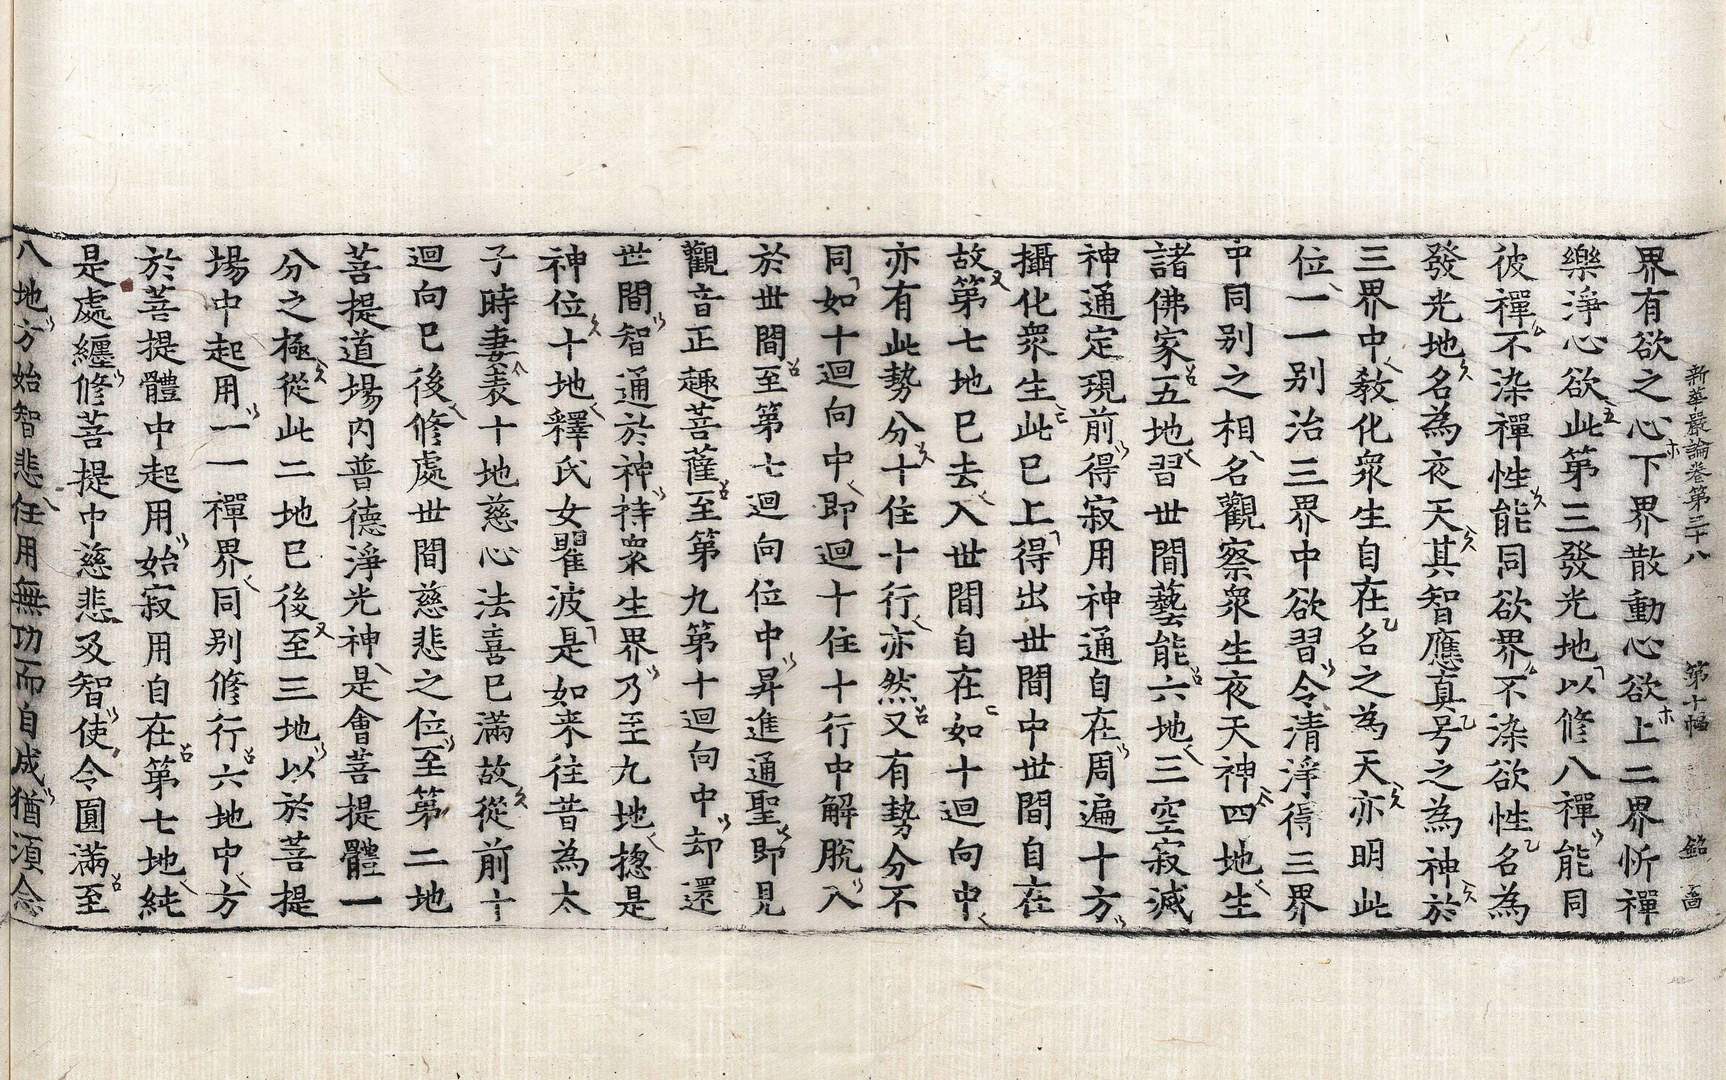 新華嚴論卷第三十八 第十幅 銘 啚
界有欲之心下界散動心欲上二界忻禪
樂淨心欲此第三發光地以修八禪能同
彼禪不染禪性能同欲界不染欲性名為
發光地名為夜天其智應真号之為神於
三界中教化衆生自在名之為天亦明此
位一一別治三界中欲習令清淨得三界
中同别之相名觀察衆生夜天神四地生
諸佛家五地習世間藝能六地三空寂滅
神通定現前得寂用神通自在周遍十方
攝化衆生此已上得出世間中世間自在
故第七地已去入世間自在如十迴向中
亦有此勢分十住十行亦然又有勢分不
同如十迴向中即迴十住十行中解脫入
於世間至第七迴向位中昇進通聖即見
觀音正趣菩薩至第九第十迴向中却還
世間智通於神持衆生界乃至九地揔是
神位十地釋氏女瞿波是如来往昔為太
子時妻表十地慈心法喜已滿故從前十
迴向已後修處世間慈悲之位至第二地
菩提道場內普德淨光神是會菩提體一
分之極從此二地已後至三地以於菩提
場中起用一一禪界同别修行六地中方
於菩提體中起用始寂用自在第七地純
是處纏修菩提中慈悲及智使令圓滿至
八地方始智悲任用無功而自成猶須念